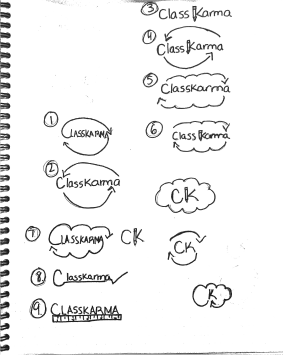 ③ Class Karma
④ Class Karma
⑤ Classkarma
① CLASSKARMA
⑥ Class Karma
② Classkarma
CK
⑦ CLASSKARMA CK
CK
⑧ Classkarma
K
⑨ CLASSKARMA